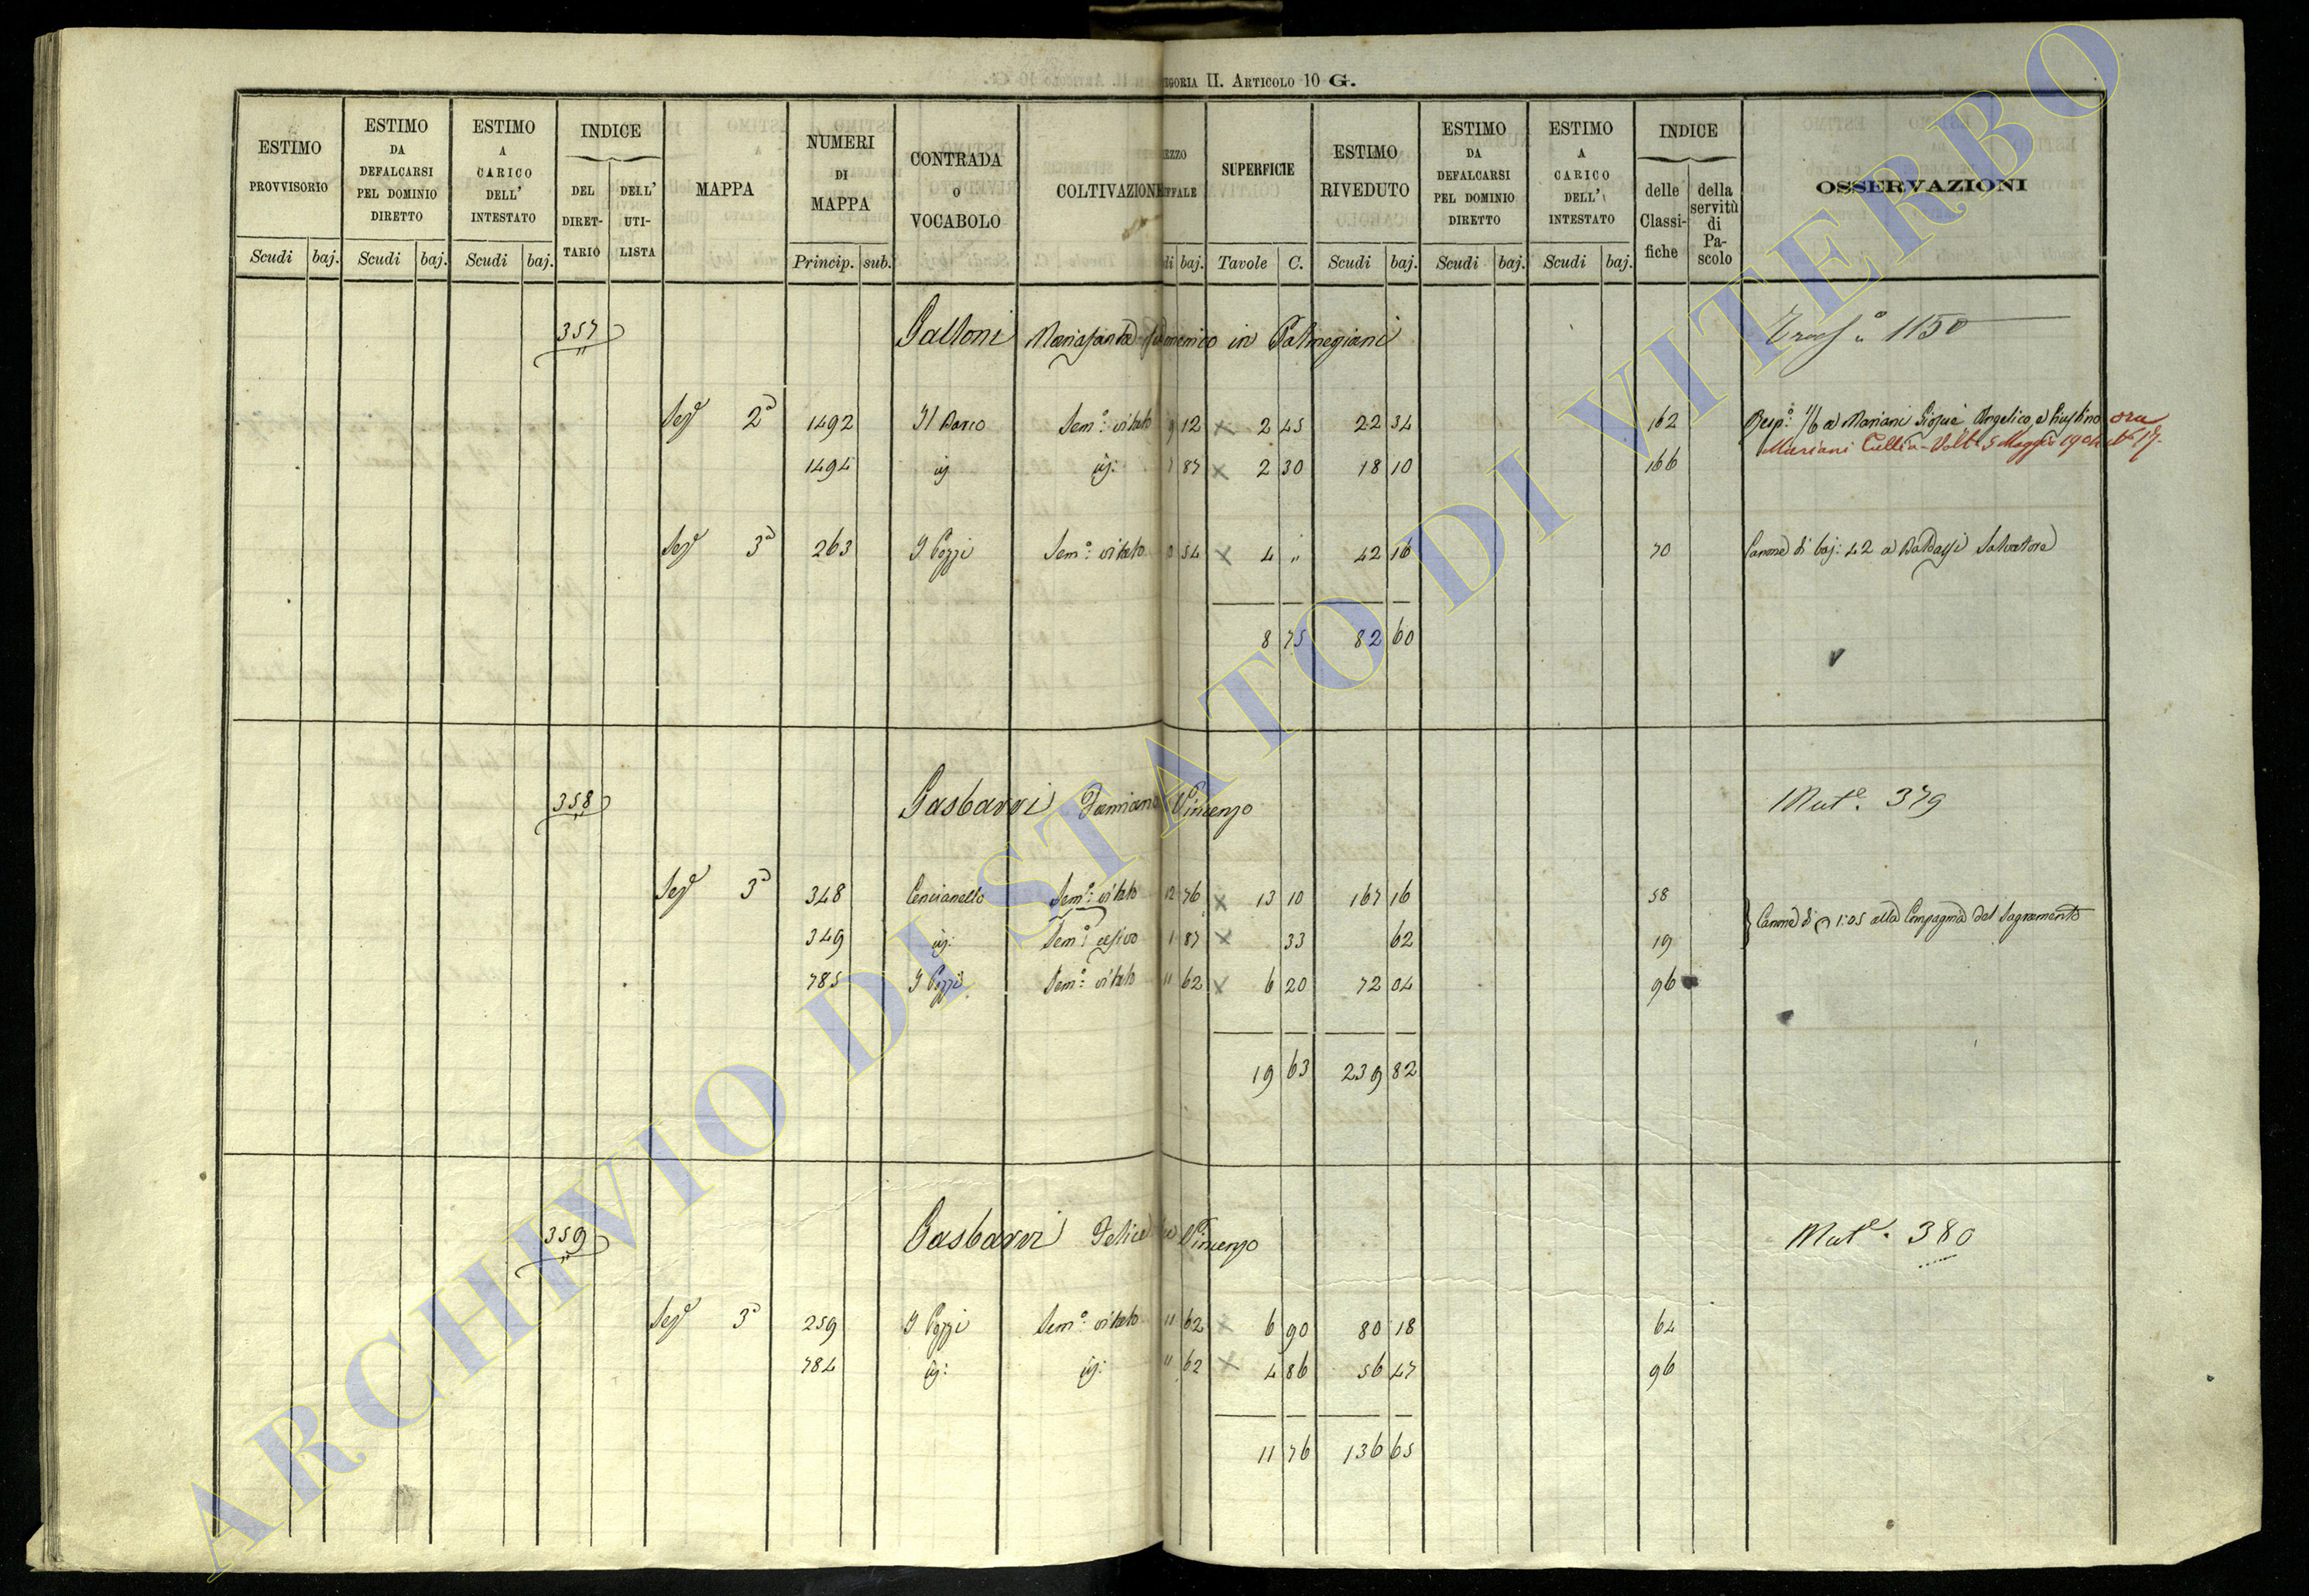 EGORIA II. ARTICOLO 10 G.
ESTIMO PROVVISORIO
ESTIMO DA DEFALCARSI PEL DOMINIO DIRETTO
ESTIMO A CARICO DELL' INTESTATO
INDICE
DEL DIRETTARIO
DELL' UTILISTA
MAPPA
NUMERI DI MAPPA
CONTRADA o VOCABOLO
COLTIVAZIONE
EZZO
UFFALE
SUPERFICIE
ESTIMO RIVEDUTO
ESTIMO DA DEFALCARSI PEL DOMINIO DIRETTO
ESTIMO A CARICO DELL' INTESTATO
INDICE
delle Classifiche
della servitù di Pascolo
OSSERVAZIONI
Scudi baj. Scudi baj. Scudi baj. Princip. sub. di baj. Tavole C. Scudi baj. Scudi baj. Scudi baj.
357 Galloni in Palmegiani 1150
Sez.e 2a 1492 Il Barco Sem.o vitato 9 12 × 2 45 22 34 162 Resp.o 1/6 a Mariani Giosuè, Angelico, e Giustino ora
Mariani Tullia - Volt. 5 Maggio 1904 N° 17.
1494 id. id. 7 87 × 2 30 18 10 166
Sez.e 3a 263 I Pozzi Sem.o vitato 0 54 × 4 " 42 16 70 Canone di baj: 42 a Baldassi Salvatore
8 75 82 60
358 Gasbarri Damiano Vincenzo Mut.e 379
Sez.e 3a 348 Cencianello Sem.o vitato 12 76 × 13 10 167 16 58
Canone di 1:05 alla Compagnia del Sagramento
349 id. Sem.o 1 87 × 33 62 19
785 I Pozzi Sem.o vitato 11 62 × 6 20 72 04 96
19 63 239 82
359 Gasbarri Felice Vincenzo Mut.e 380
Sez.e 3a 259 I Pozzi Sem.o vitato 11 62 × 6 90 80 18 64
784 id: id: 11 62 × 4 86 56 47 96
11 76 136 65
ARCHIVIO DI STATO DI VITERBO